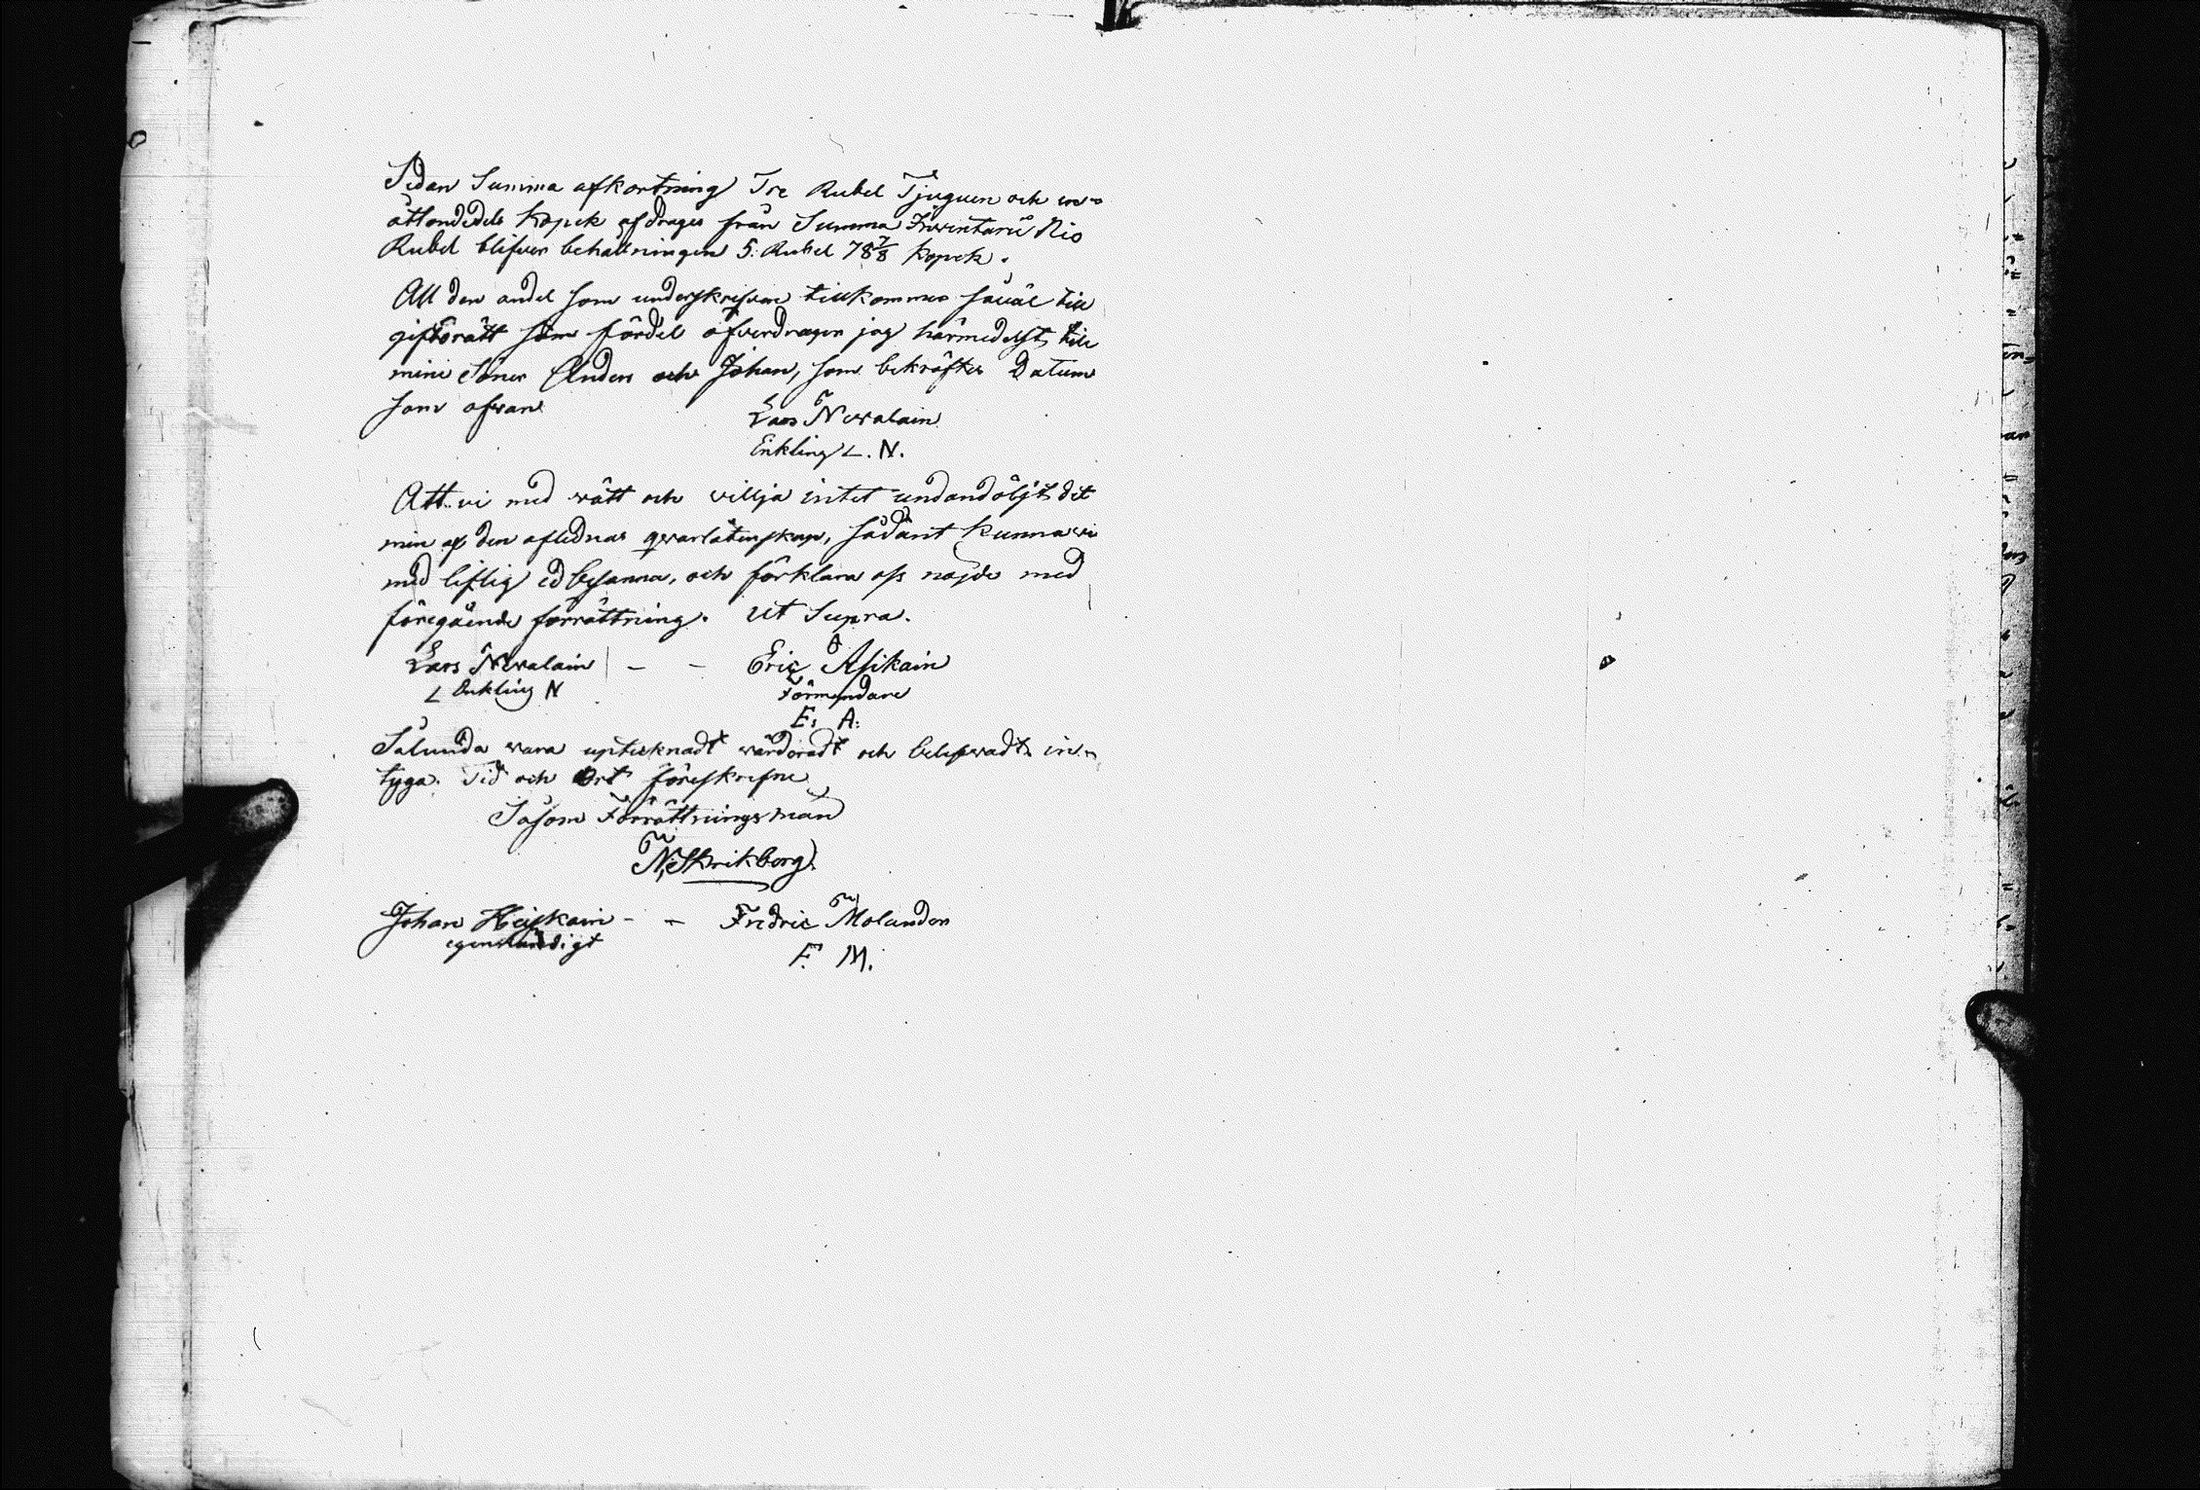 Sedan Summa afkortning Tre Rubel Tjuguen och en
åttondedels kopek afdrages från Summa Inventarii Nio
Rubel blifver behållningen 5. Rubel 78 7/8 kopek.
All den andel som underskrifven tillkommer såväl till
giftorätt som fördel öfverdrager jag härmedelst till
mine Söner Anders och Johan, som bekräftes Datum
som ofvan
Lars Nevalain
Enkling L. N.
Att vi med vätt och villja intet undandöljt det
min af den aflednas qvarlåtenskap, sådant kunna vi
med liflig ed besanna, och förklara oss nöjde med
föregående förrättning. Ut Supra.
Lars Nevalain - - Eric Asikain
L Enkling N Förmyndare
E. A.
Sålunda vara uptecknadt värderadt och bebefvadt in-
tyga. Tid och Ort föreskrefne
Såsom Förrättningsmän
N. Skrikberg
Johan Heiskain - - Fredric Molander
egenhändigt F. M.